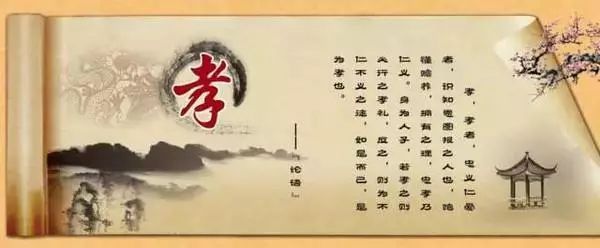 孝
孝，孝者，忠义仁爱
者，识知恩图报之人也，
懂赡养，拥有之理，忠孝乃
仁义。身为人子，若孝之则
行之孝礼，之，则为不
仁不义之徒，如是而已，是
为孝也。
——『论语』